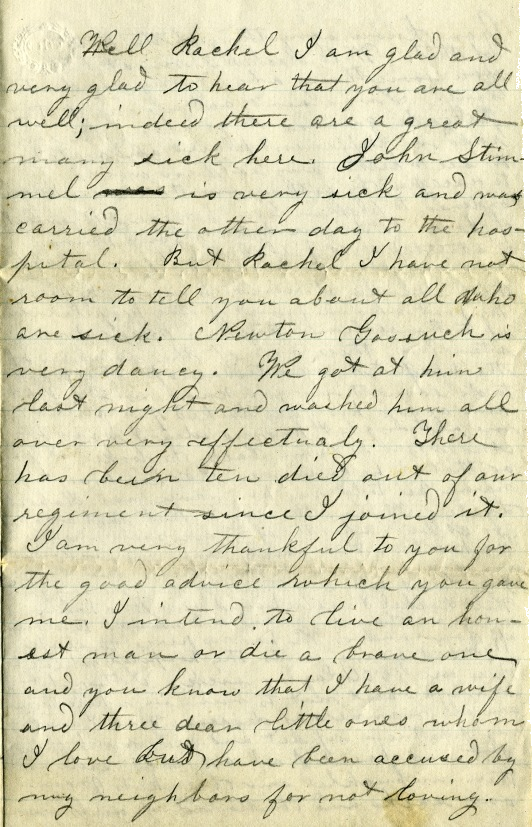 Well Rachel I am glad and
very glad to hear that you are all
well; indeed there are a great
many sick here. John Stim-
mel is very sick and was
carried the other day to the hos-
pital. But Rachel I have not
room to tell you about all who
are sick. Newton Gossuch is
very dancy. We got at him
last night and washed him all
over very effectualy. There
has been ten died out of our
regiment since I joined it.
I am very thankful to you for
the good advice which you gave
me. I intend to live an hon-
est man or die a brave one
and you know that I have a wife
and three dear little ones whom
I love But have been accused by
my neighbors for not loving.